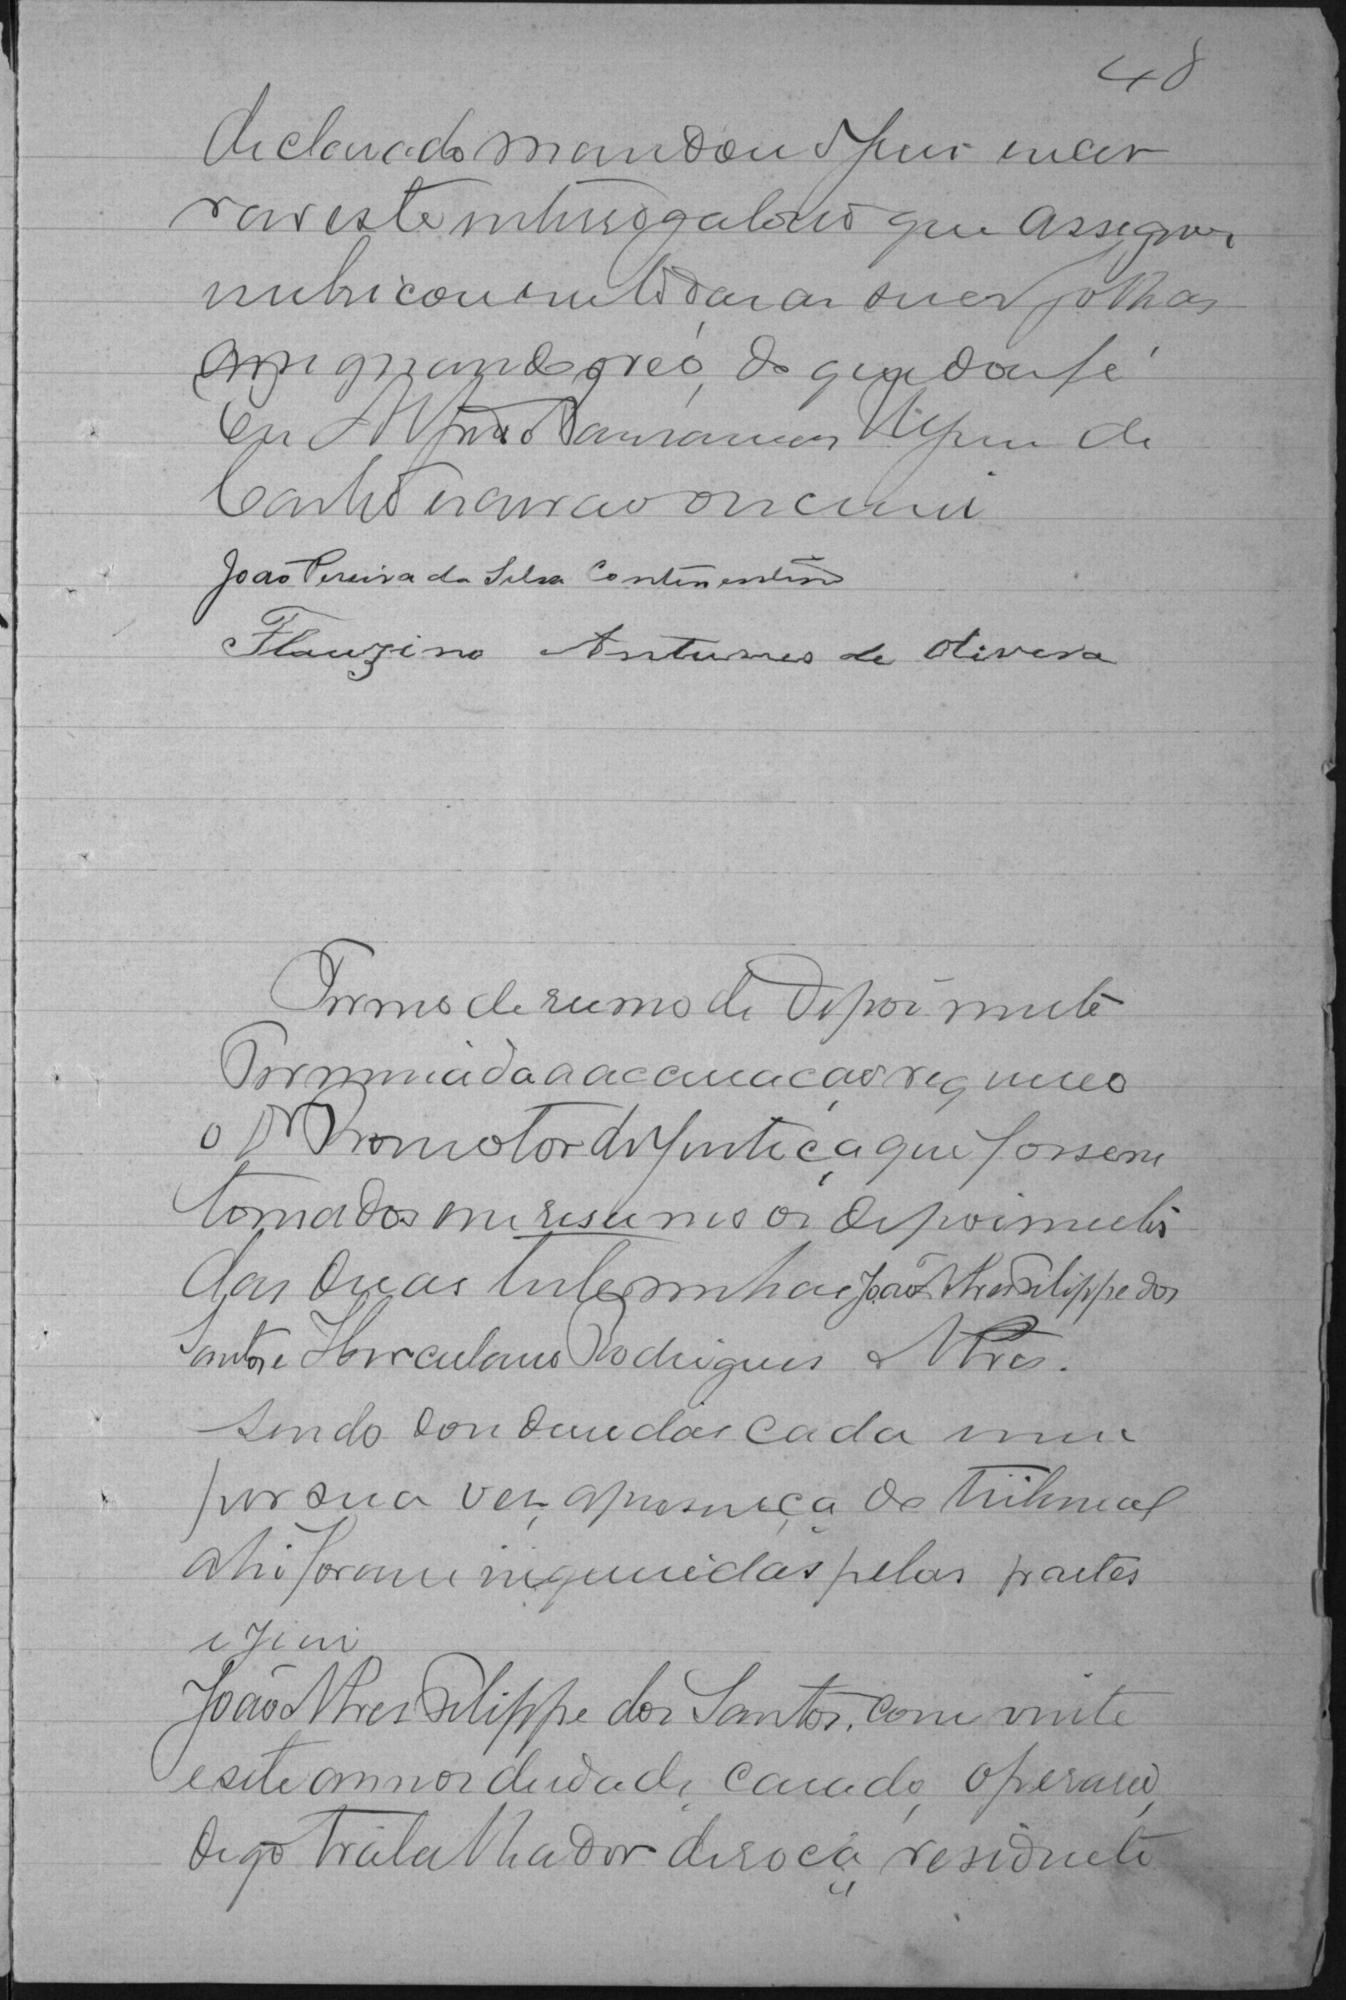 48
declarado mandou o juiz encer
rar este interrogatorio que assigna,
rubricou em todas as suas folhas
assignando o reo, do que dou fé
Eu Alfredo de
Castro escrivão o escrevi
João Pereira da Silva Continentino
Flauzino Antunes de Olivera
Termo de resumo de depoimento
Terminada a accusação requereo
o Dr Promotor de Justiça que fossem
tomados em resumo os depoimentos
das duas testeminhas João Alves Filippe dos
Santos e Herculano Rodrigues Alves.
sendo condusidas cada uma
por sua vez, a presença do tribunal
ahi foram inqueridas pelas partes
e juiz
João Alves Filippe dos Santos, com vinte
e sete annos de idade, casado, operario,
digo trabalhador de roça, residente